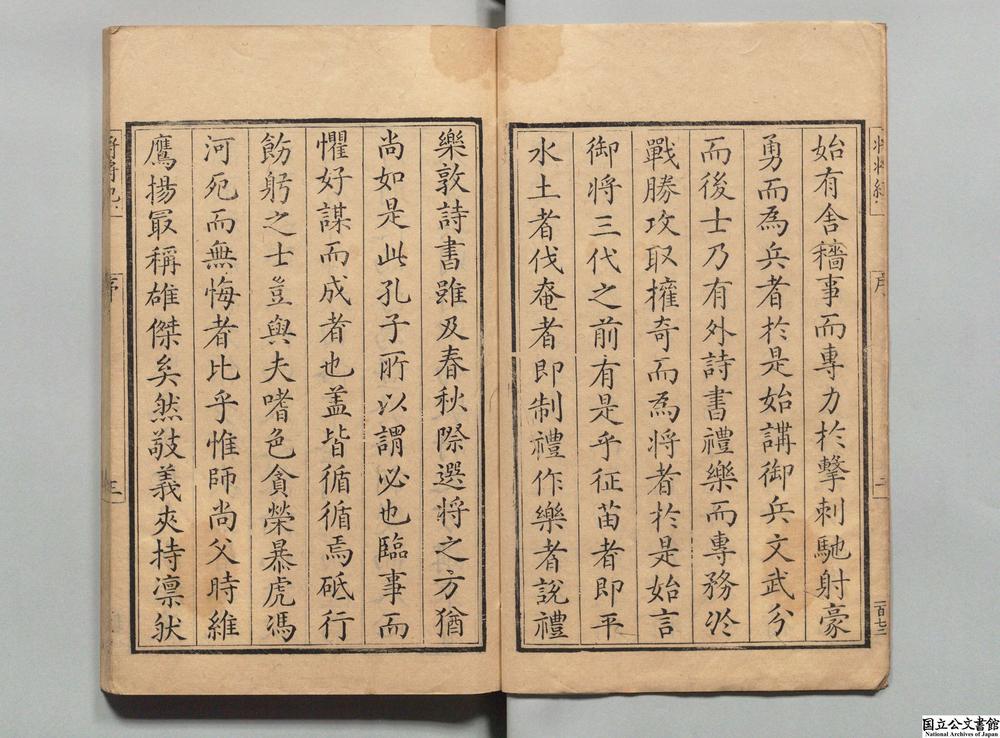 始有舍穡事而專力於擊刺馳射豪
勇而為兵者於是始講御兵文武分
而後士乃有外詩書禮樂而專務於
戰勝攻取權奇而為将者於是始言
御将三代之前有是乎征苗者即平
水土者伐奄者即制禮作樂者說禮
樂敦詩書雖及春秋際選将之方猶
尚如是此孔子所以謂必也臨事而
懼好謀而成者也盖皆循循焉砥行
飭躬之士豈與夫嗜色貪榮暴虎馮
河死而無悔者比乎惟師尚父時維
鷹揚㝡稱雄傑矣然敬義夾持凛肰
序
三
百七二
国立公文書館
National Archives of Japan